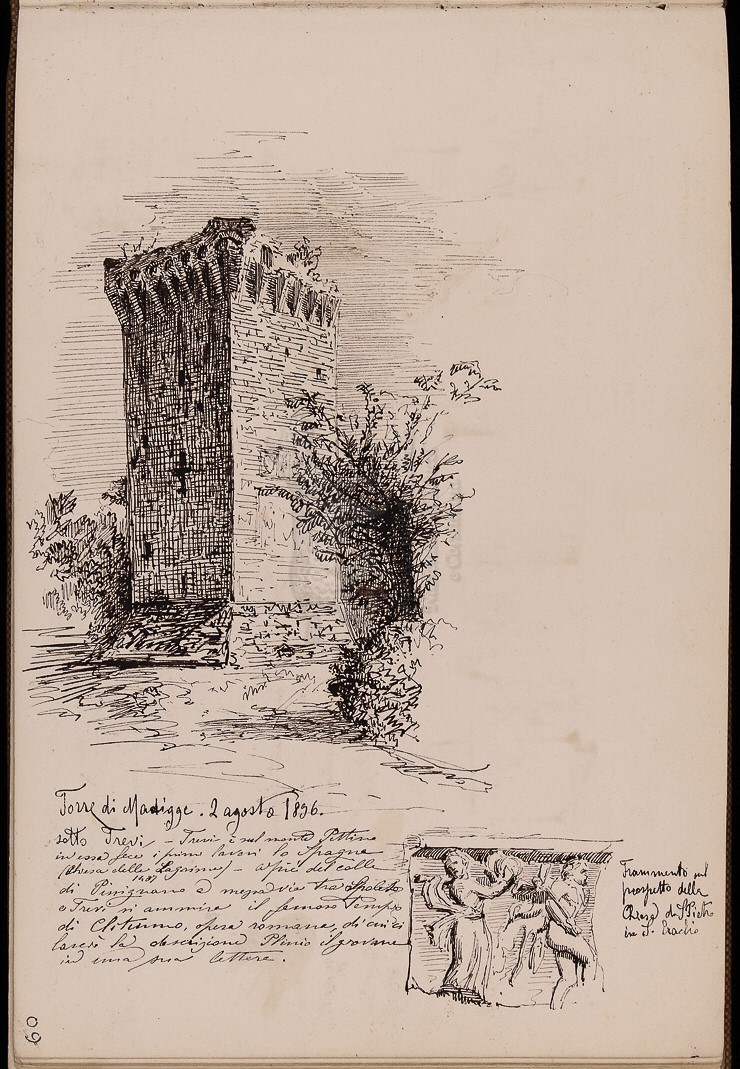 Torre di Matigge. 2 agosto 1896.
sotto Trevi, - Trevi è sul monte Pittino
in essa fece i primi lavori lo Spagna
(Chiesa delle Lagrime) - a piè del colle
di Pissignano a mezza via tra Spoleto
e Trevi si ammira il famoso Tempio
di Clitunno, opera romana, di cui ci
lasciò la descrizione Plinio il giovane
in una sua lettera.
Frammento nel
prospetto della
Chiesa di S. Pietro
in S.
60